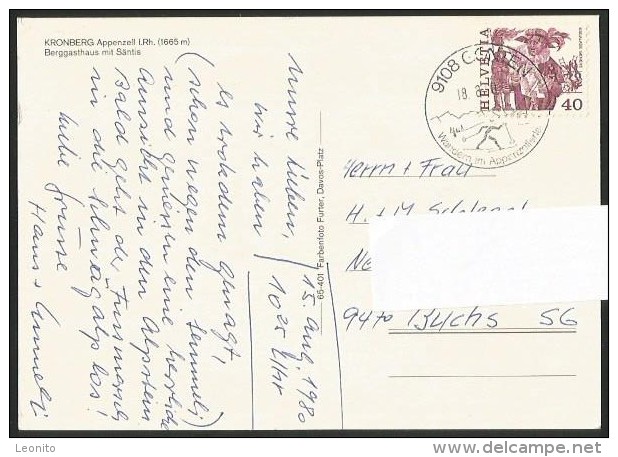 KRONBERG Appenzell I.Rh. (1665 m)
Berggasthaus mit Säntis
15. Aug. 1980
10 25 Uhr
wir haben
es trotzdem gewagt,
(schon wegen den Semmeli)
und geniessen eine herrliche
Aussicht in den Alpstein
Bald geht der Fussmarsch
in die Schwägalp los!
Liebe Grüsse
Hans +
65-401 Farbenfoto Furter, Davos-Platz
9108
18.
Wandern im Appenzellerland
HELVETIA
40
Herrn + Frau
H. + M.
9470 Buchs SG
Leonito
delcampe.net